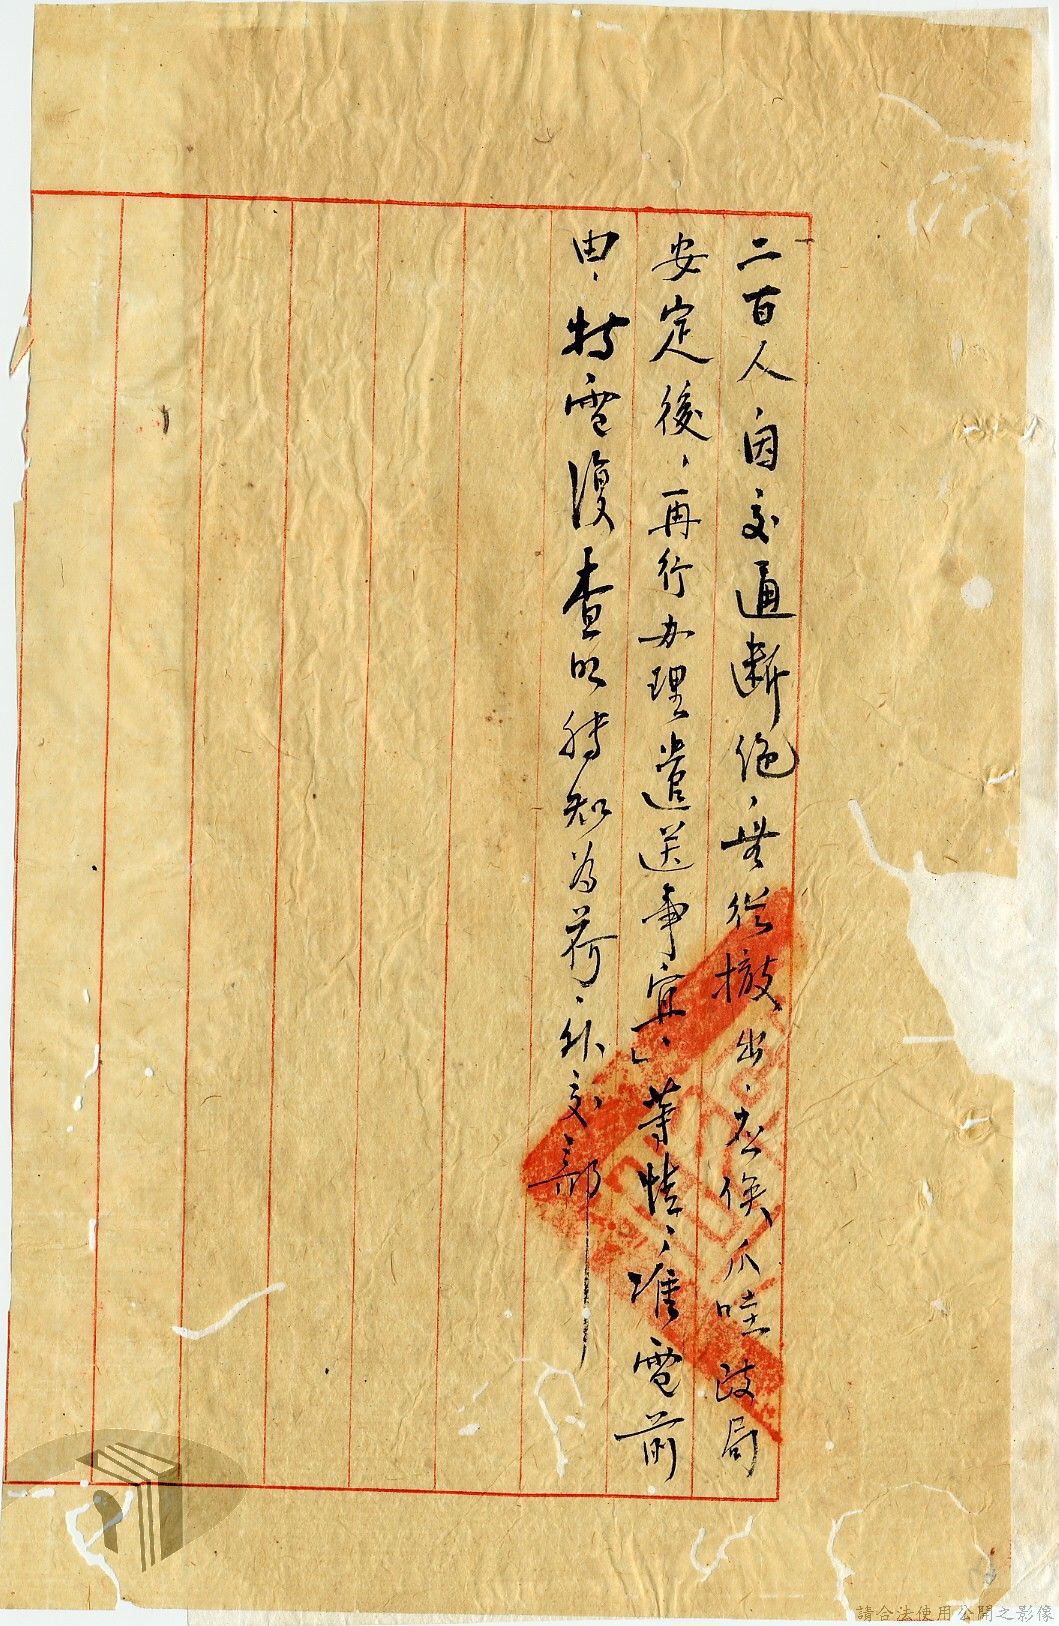 二百人因交通断绝、無從撤出、應俟爪哇政局
安定後、再行办理遣送事宜」、等情、准電前
由、特電復查照轉知為荷、外交部
請合法使用公開之影像